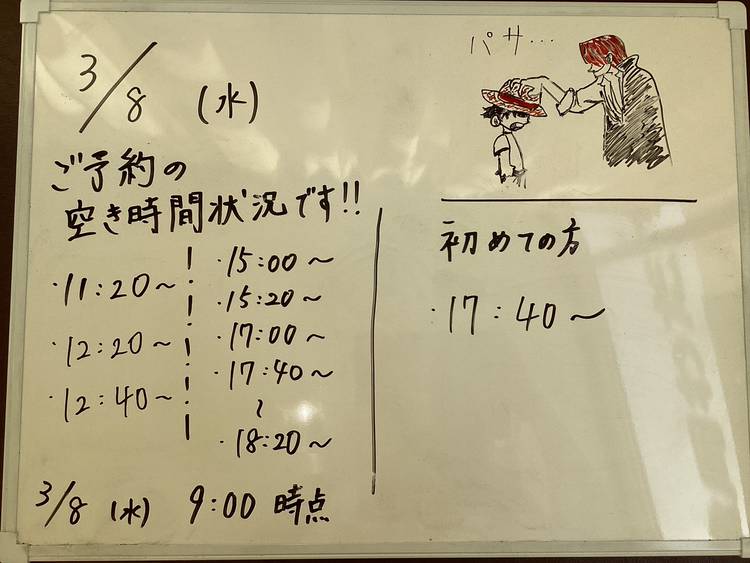 3/8 (水)
パサ…
ご予約の
空き時間状況です!!
・11:20～
・12:20～
・12:40～
・15:00～
・15:20～
・17:00～
・17:40～
～
・18:20～
初めての方
・17:40～
3/8 (水) 9:00 時点